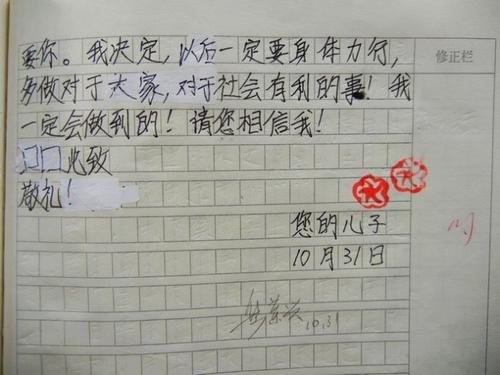 要你。我决定,以后一定要身体力行,
多做对于大家,对于社会有利的事!我
一定会做到的!请您相信我!
此致
敬礼!
您的儿子
10月31日
10.31
修正栏